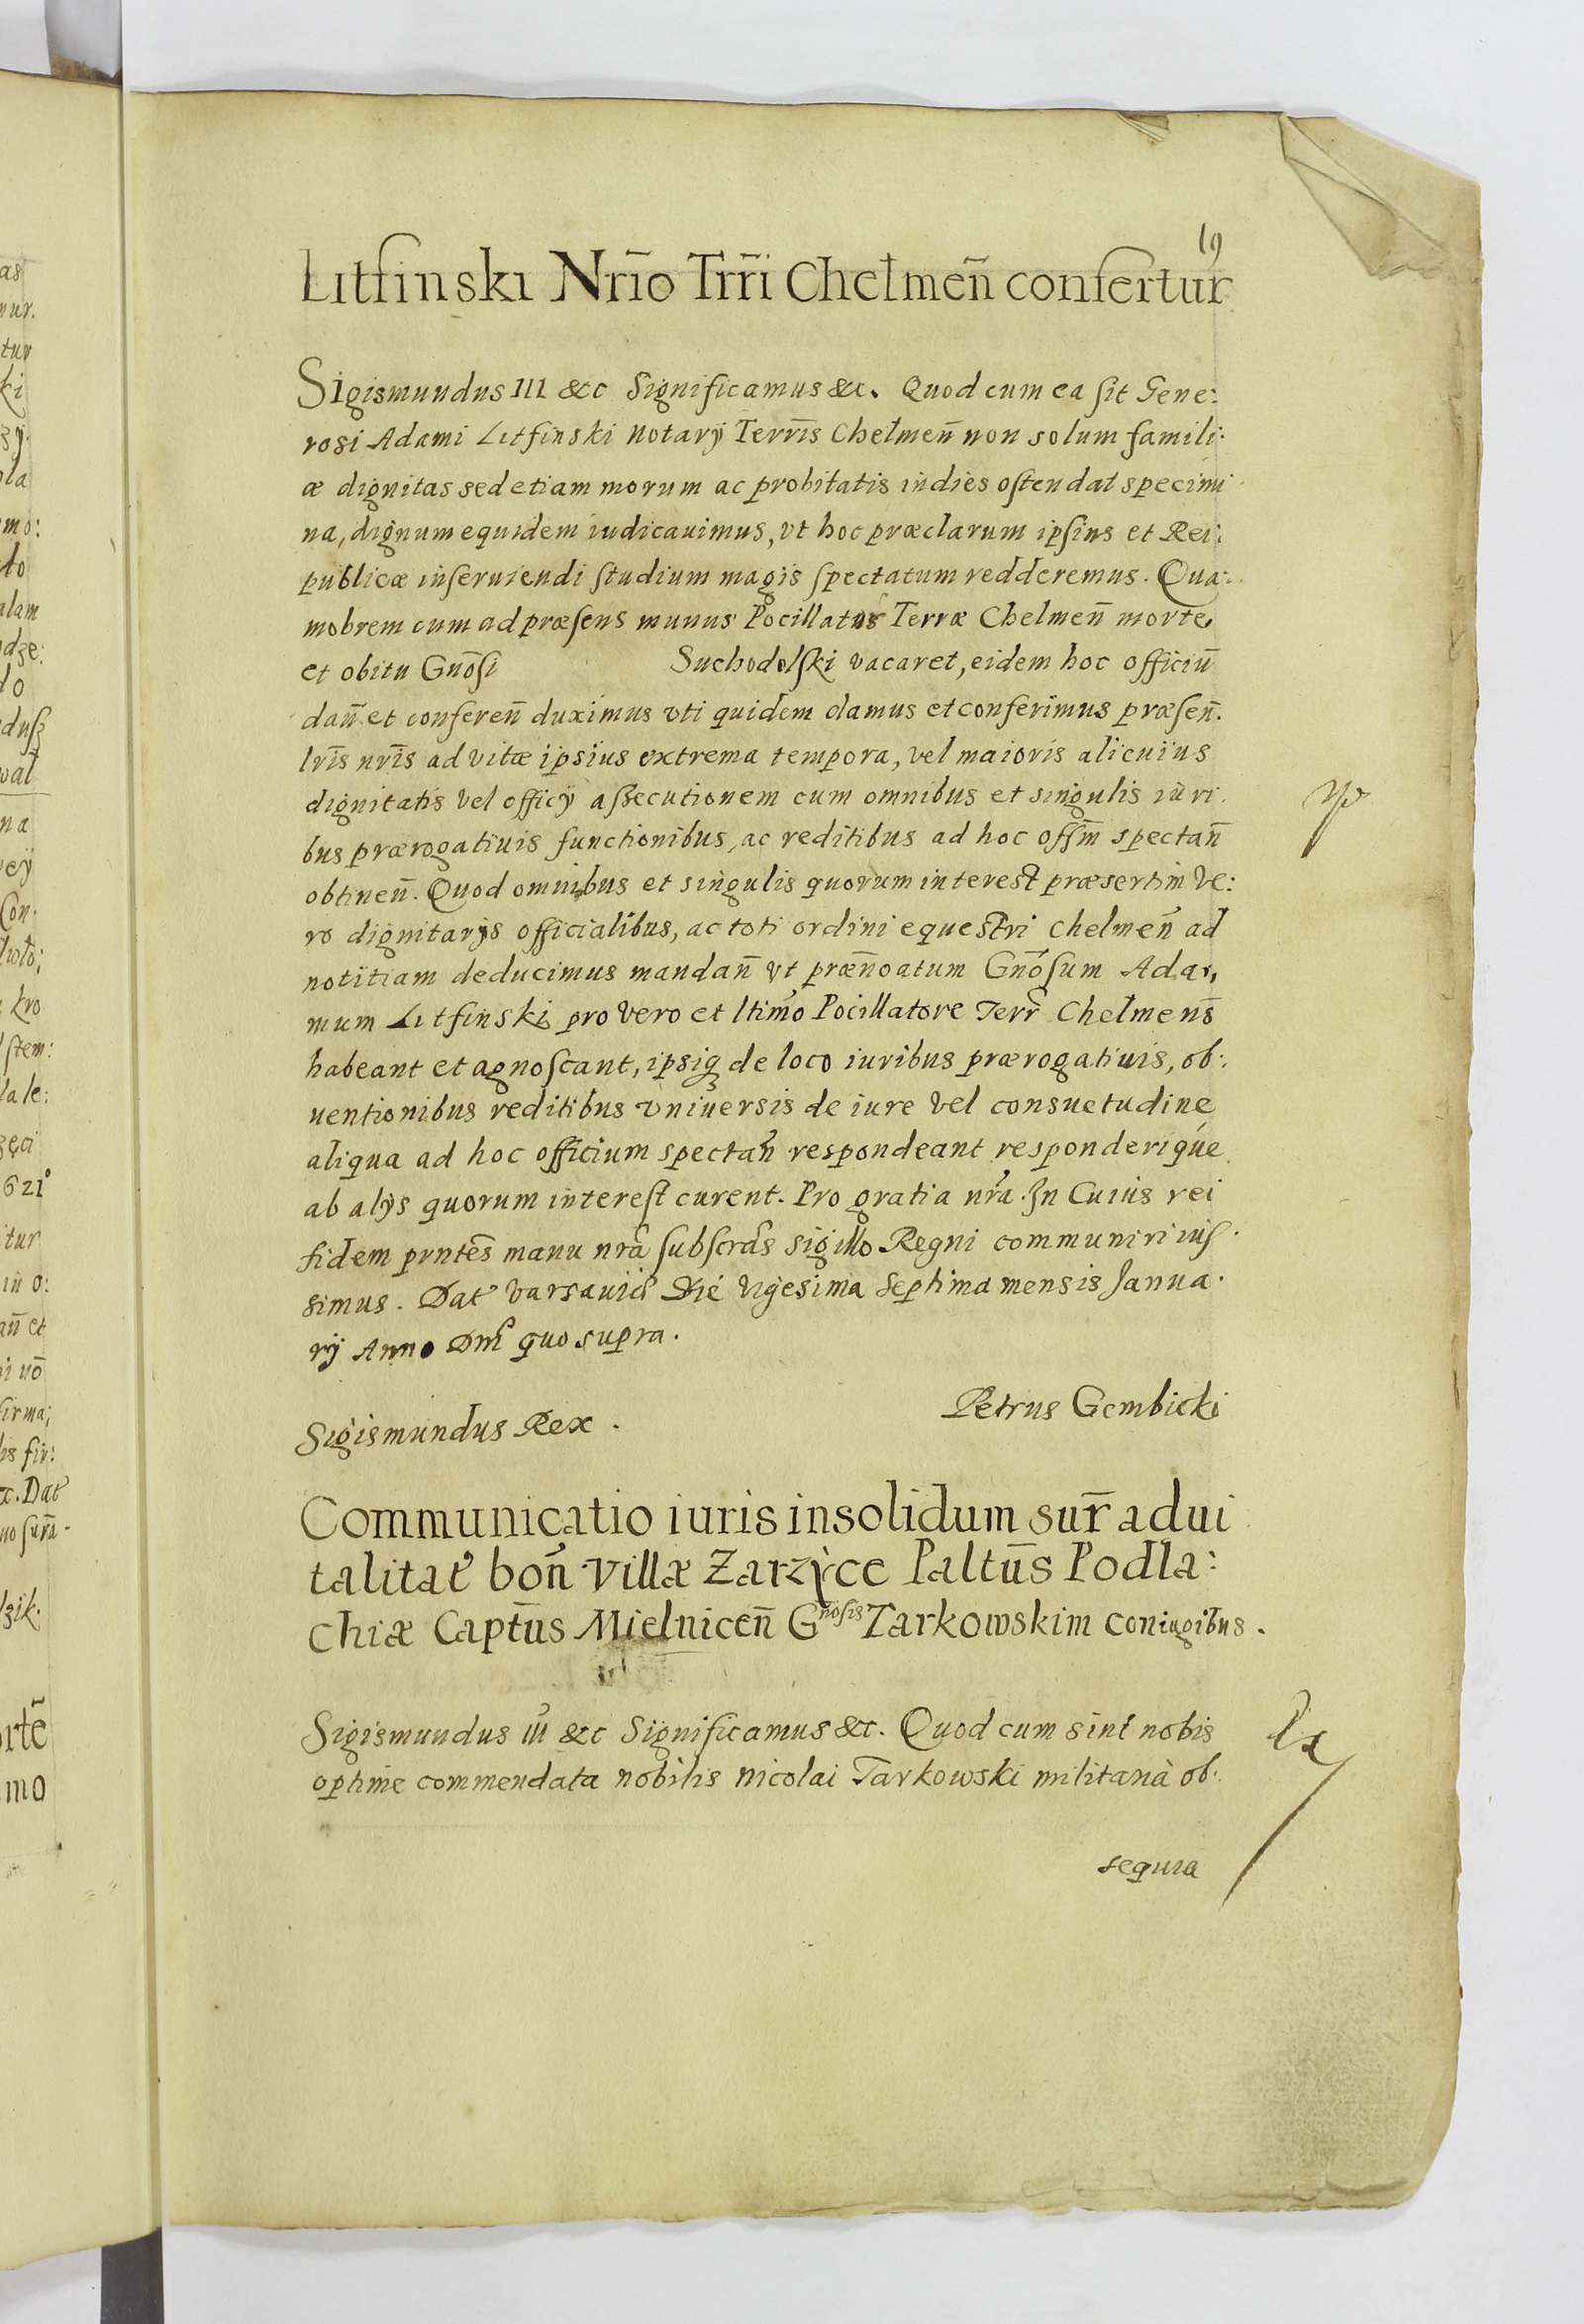 19
Litfinski Nrīo Trr̄i Chełmen̄ confertur
Sigismundus III &c Significamus &c. Quod cum ea sit Gene:
rosi Adami Litfinski Notarij Terrīs Chełmen̄ non solum famili:
æ dignitas sed etiam morum ac probitatis indies ostendat specimi
na, dignum equidem iudicauimus, vt hoc præclarum ipsius et Rei:
publicæ inseruiendi studium magis spectatum redderemus. Qua:
mobrem cum ad præsens munus Pocillatus Terræ Chełmen̄ morte
et obitu Gnōsi Suchodolski vacaret, eidem hoc officiū
dan̄ et conferen̄ duximus vti quidem damus et conferimus præsen̄.
lrīs nrīs ad vitæ ipsius extrema tempora, vel maioris alicuius
dignitatis vel officij assecutionem cum omnibus et singulis iuri.
bus prærogatiuis functionibus, ac reditibus ad hoc offīm spectan̄
obtinen̄. Quod omnibus et singulis quorum interest præsertim ve:
ro dignitarijs officialibus, ac toti ordini equestri Chełmen̄ ad
notitiam deducimus mandan̄ vt præn̄oatum Gnōsum Ada,
mum Litfinski pro vero et ltimō Pocillatore Terr̄ Chełmen̄s
habeant et agnoscant, ipsiq₃ de loco iuribus prærogatiuis, ob:
uentionibus reditibus vniuersis de iure vel consuetudine
aliqua ad hoc officium spectan̄ respondeant responderique
ab alijs quorum interest curent. Pro gratia nrā. In Cuius rei
fidem prntēs manu nrā subscrās sigillo Regni communiri ius
simus. Dat Varsauiæ Die Vigesima Septima mensis Janua.
rij Anno Dnī quo supra.
Petrus Gembicki
Sigismundus Rex.
Communicatio iuris insolidum sur̄ adui
talitat bon̄ Villæ Zarzyce Paltūs Podla:
chiæ Captūs Mielnicen̄ Gnosis Tarkowskim coniugibus.
Sigismundus III &c Significamus &c. Quod cum sint nobis
optime commendata nobilis Nicolai Tarkowski militaria ob:
sequia